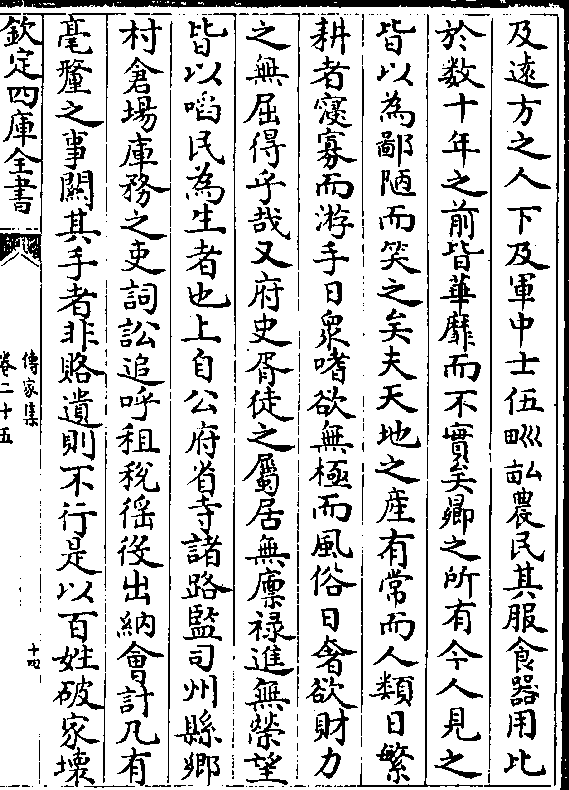 及逺方之人下及軍中士伍甽畝農民其服食器用比
於数十年之前皆華靡而不實矣鄉之所有今人見之
皆以為鄙陋而笑之矣夫天地之産有常而人類日繁
耕者寖寡而游手日衆嗜欲無極而風俗日奢欲財力
之無屈得乎哉又府史胥徒之屬居無廩禄進無榮望
皆以㗖民為生者也上自公府省寺諸路監司州縣鄉
村倉場庫務之吏詞訟追呼租稅徭役出納㑹計凡有
毫釐之事闗其手者非賂遺則不行是以百姓破家壊
欽定四庫全書
傳家集
卷二十五
十四